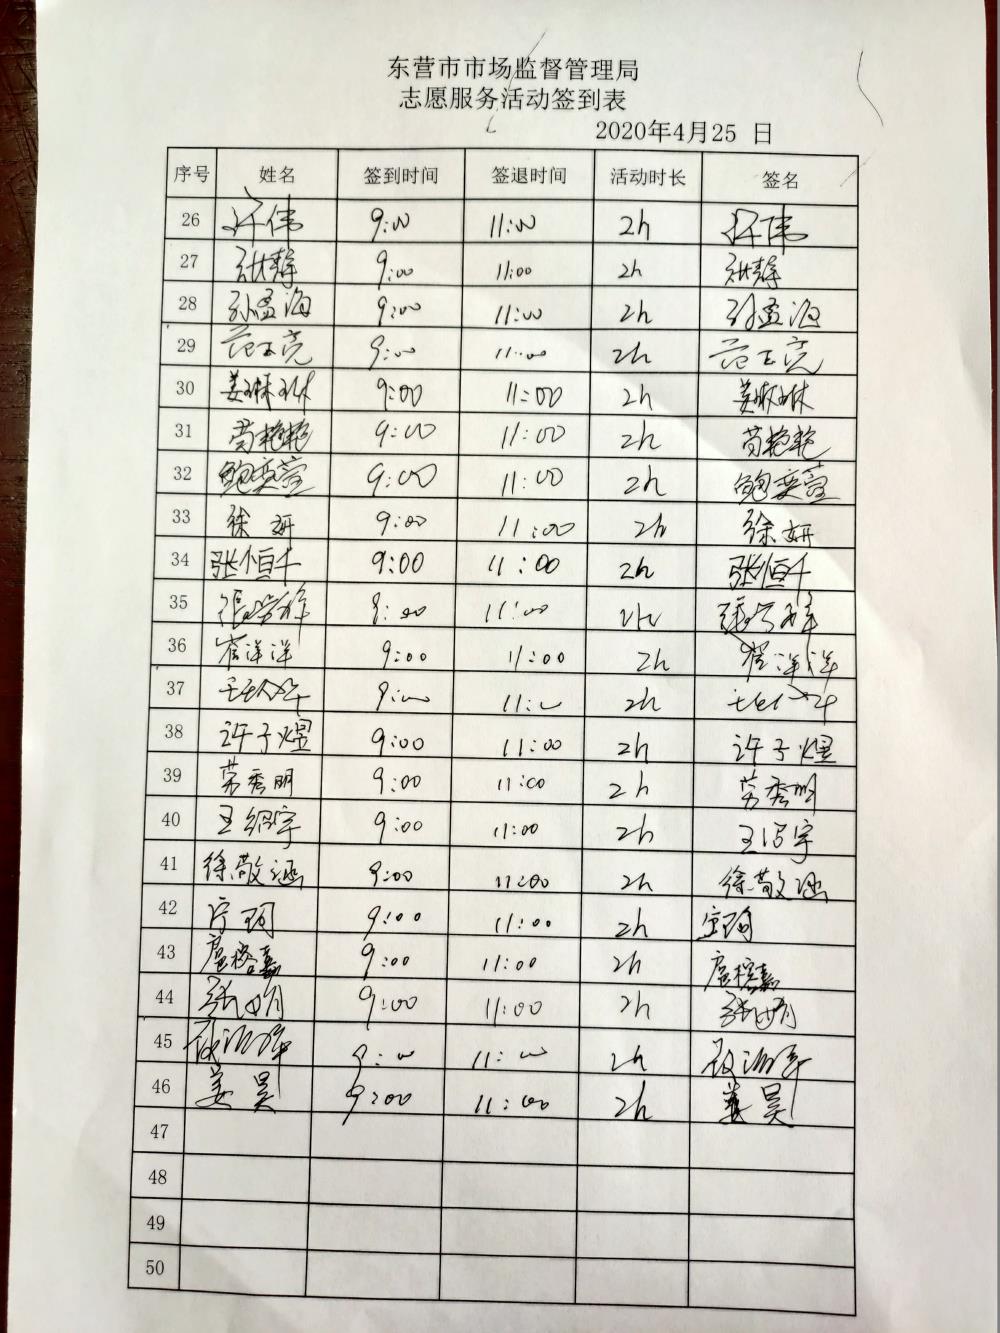 东营市市场监督管理局
志愿服务活动签到表
2020年4月25 日
序号 姓名 签到时间 签退时间 活动时长 签名
26 许伟 9:00 11:00 2h 许伟
27 张静 9:00 11:00 2h 张静
28 孙孟海 9:00 11:00 2h 孙孟海
29 范玉亮 9:00 11:00 2h 范玉亮
30 姜琳琳 9:00 11:00 2h 姜琳琳
31 苟艳艳 9:00 11:00 2h 苟艳艳
32 鲍奕萱 9:00 11:00 2h 鲍奕萱
33 徐妍 9:00 11:00 2h 徐妍
34 张恒千 9:00 11:00 2h 张恒千
35 9:00 11:00 2h
36 崔洋洋 9:00 11:00 2h 崔洋洋
37 9:00 11:00 2h
38 许子煜 9:00 11:00 2h 许子煜
39 荣秀明 9:00 11:00 2h 荣秀明
40 王绍宇 9:00 11:00 2h 王绍宇
41 徐敬涵 9:00 11:00 2h 徐敬涵
42 9:00 11:00 2h
43 9:00 11:00 2h
44 张娟 9:00 11:00 2h 张娟
45 9:00 11:00 2h
46 姜昊 9:00 11:00 2h 姜昊
47
48
49
50